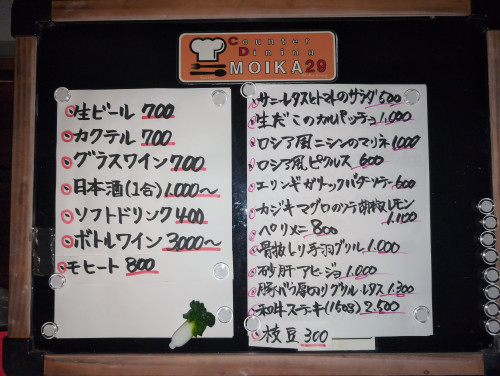 Counter
Dining
MOIKA29
生ビール 700
カクテル 700
グラスワイン 700
日本酒(1合) 1,000〜
ソフトドリンク 400
ボトルワイン 3000〜
モヒート 800
サニーレタスとトマトのサラダ 500
生だこのカルパッチョ 1,000
ロシア風ニシンのマリネ 1,000
ロシア風ピクルス 600
エリンギガーリックバターソテー 600
カジキマグロのソテー胡椒レモン
1,100
ペリメニ 800
骨抜き手羽グリル 1.000
砂肝アヒージョ 1.000
豚バラ厚切りグリル・レタス 1.300
和牛ステーキ(150g) 2.500
枝豆 300